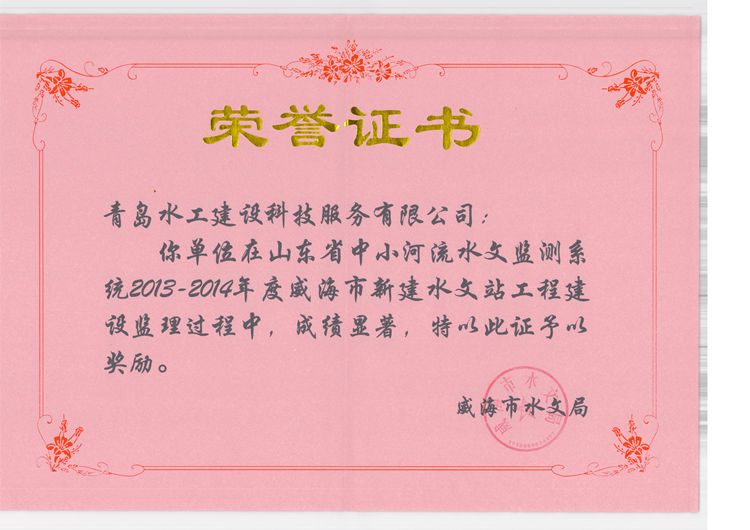 荣誉证书
青岛水工建设科技服务有限公司：
你单位在山东省中小河流水文监测系
统2013-2014年度威海市新建水文站工程建
设监理过程中，成绩显著，特以此证予以
奖励。
威海市水文局